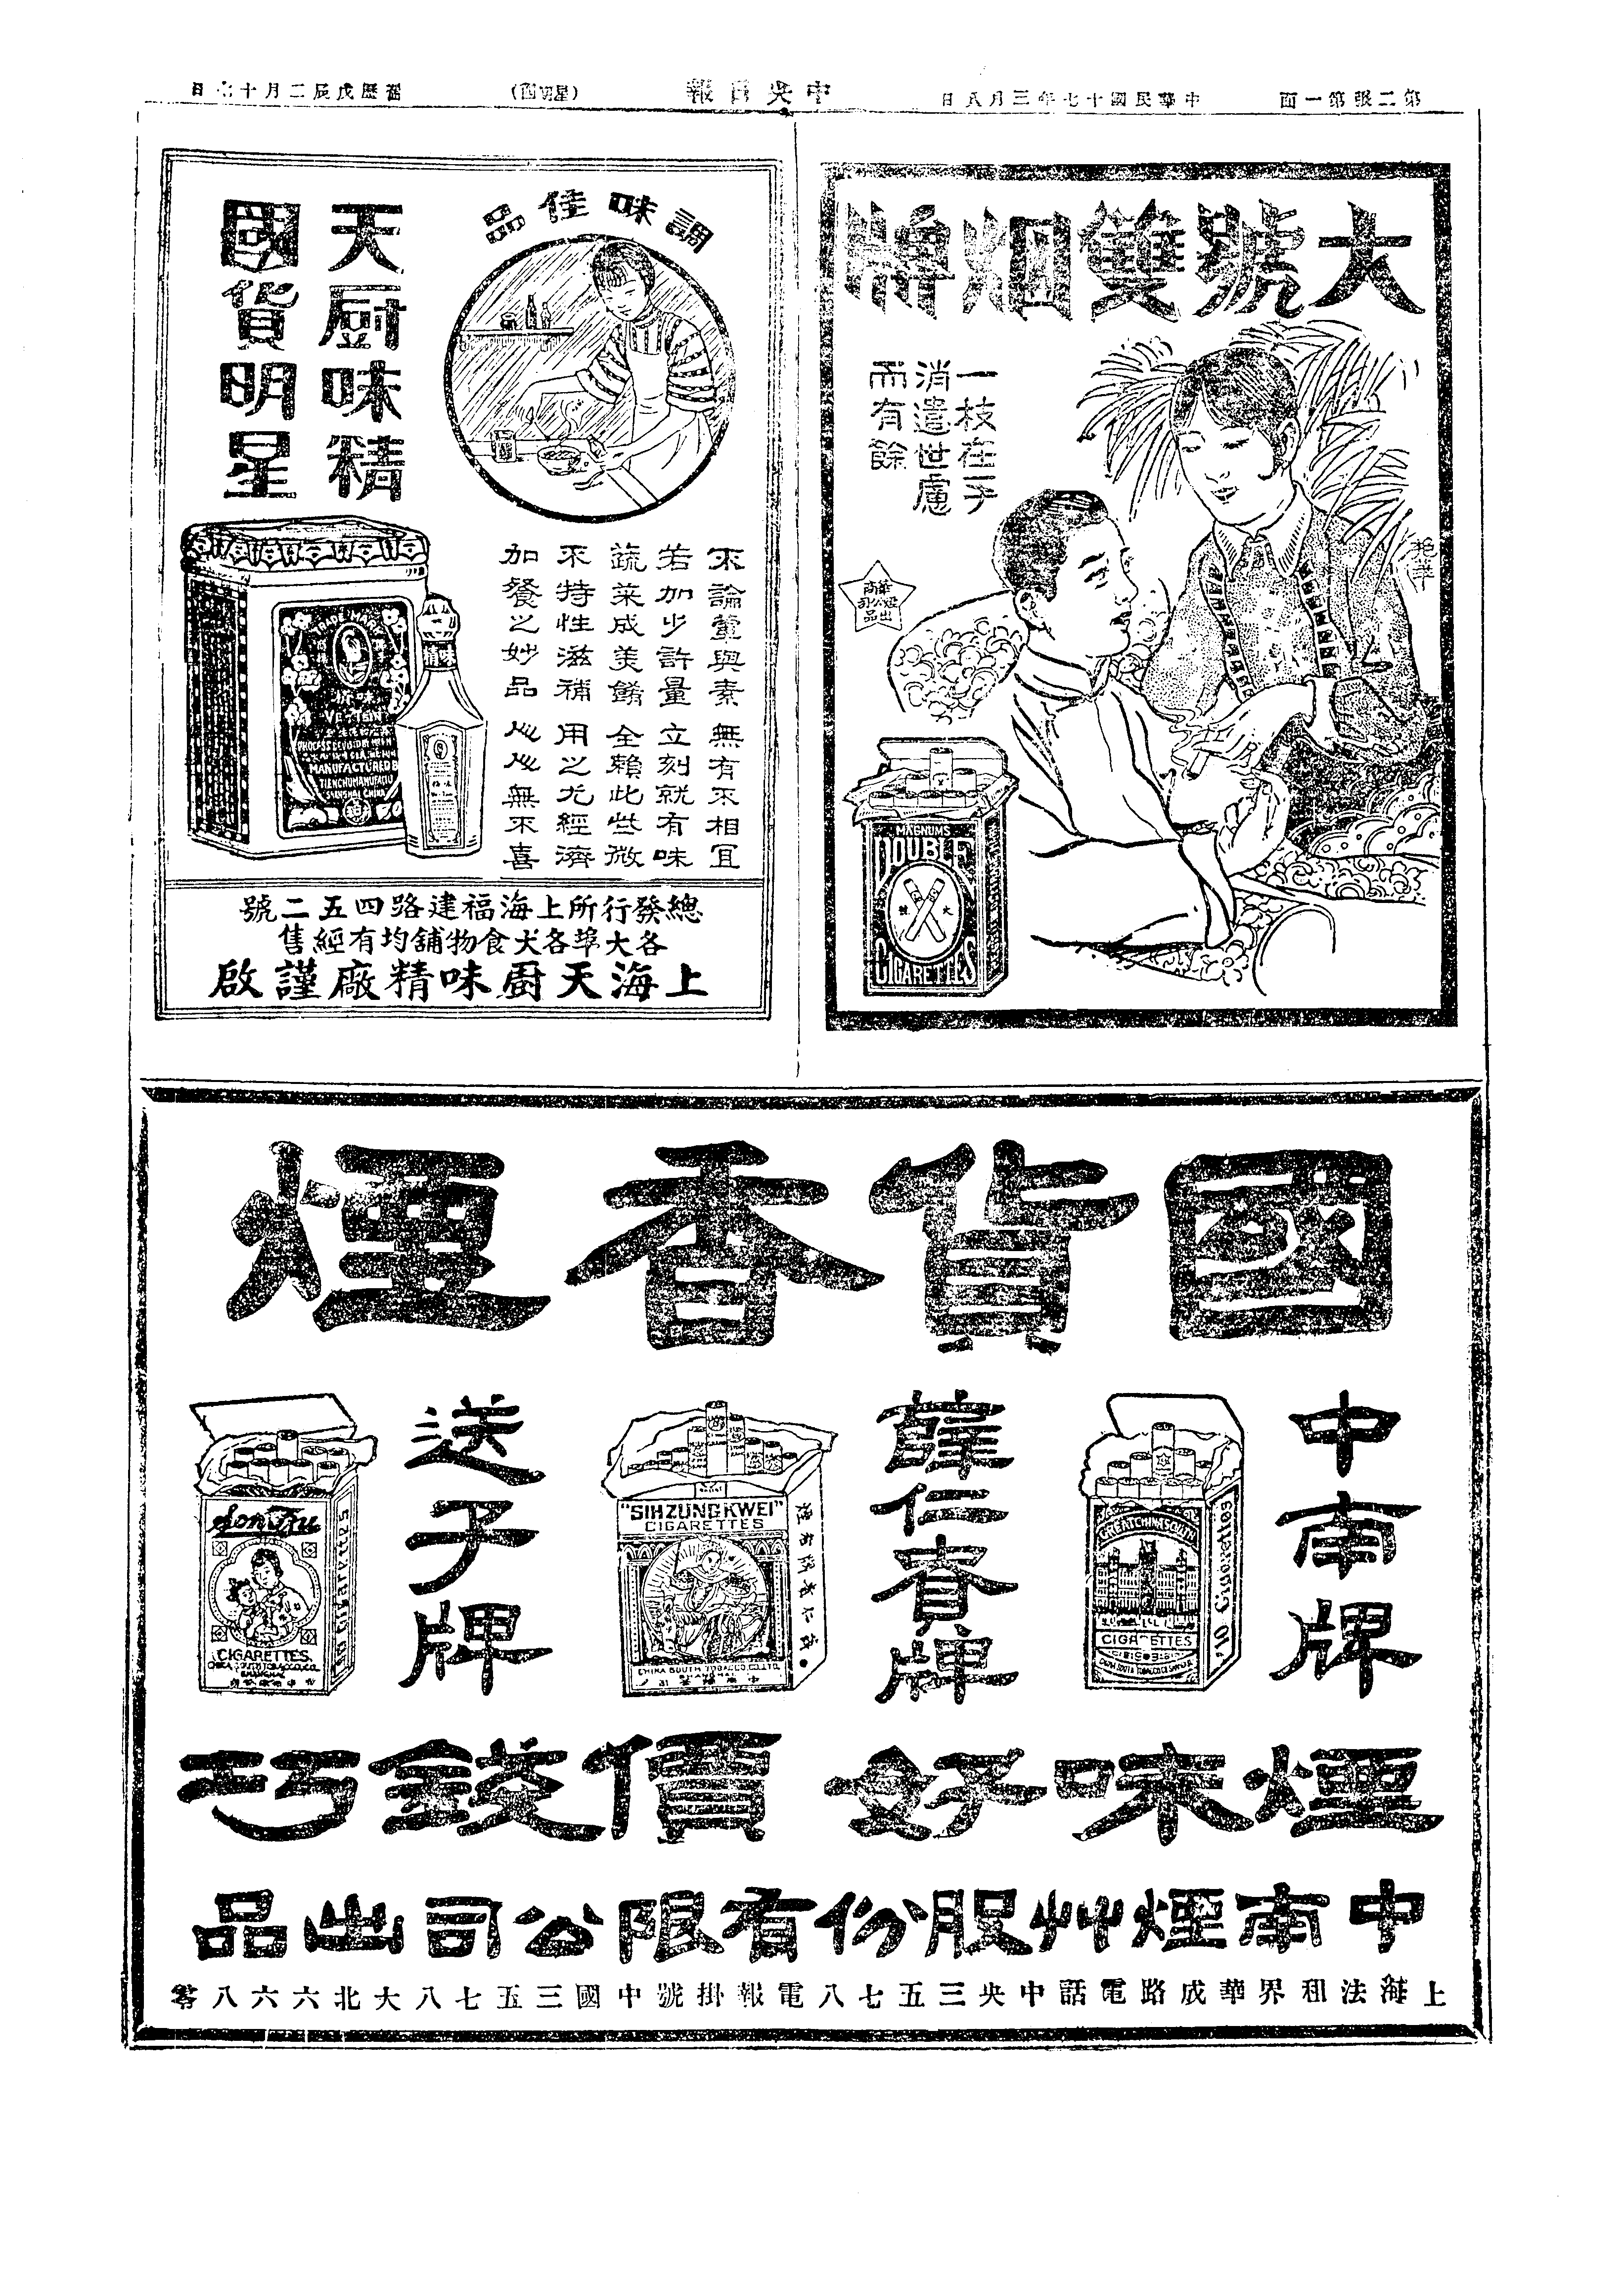 第二張第一面
中華民國十七年三月八日
中央日報
(星期四)
舊歷戊辰二月十七日
大號雙烟牌
一枝在手
消遣世慮
而有餘
華商烟公司出品
MAGNUMS
DOUBLE
大號
CIGARETTES
調味佳品
天厨味精
國貨明星
不論葷與素 無有不相宜
若加少許量 立刻就有味
蔬菜成美餚 全賴此些微
不特性滋補 用之尤經濟
加餐之妙品 人人無不喜
TRADE MARK
VE-TSIN
MANUFACTURED B
總發行所上海福建路四五二號
各大埠各大食物舖均有經售
上海天厨味精廠謹啟
國貨香煙
中南牌
GREATCHINASOUTH
CIGARETTES
10 Cigarettes
薛仁貴牌
"SIHZUNGKWEI"
CIGARETTES
CHINA SOUTH TOBACCO CO. LTD.
送子牌
Son Tzu
CIGARETTES
TEN CIGARETTES
煙味好 價錢巧
中南煙艸股份有限公司出品
上海法租界華成路電話中央三五七八電報掛號中國三五七八大北六六八零